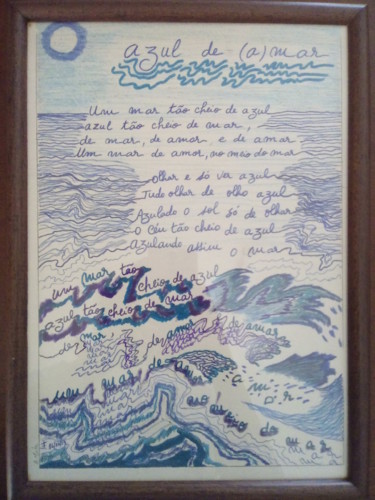 azul de (a)mar
Um mar tão cheio de azul
azul tão cheio de mar,
de mar, de amor e de amar
Um mar de amor, no meio do mar
Olhar e só va azul
Tudo olhar de olho azul
Azulado o sol só de olhar
O céu tão cheio de azul
Azulando assim o mar
um mar tão
cheio de azul
azul tão cheio de mar
de mar,
de amor
de amar
um mar de amor
a m o r
no meio do mar